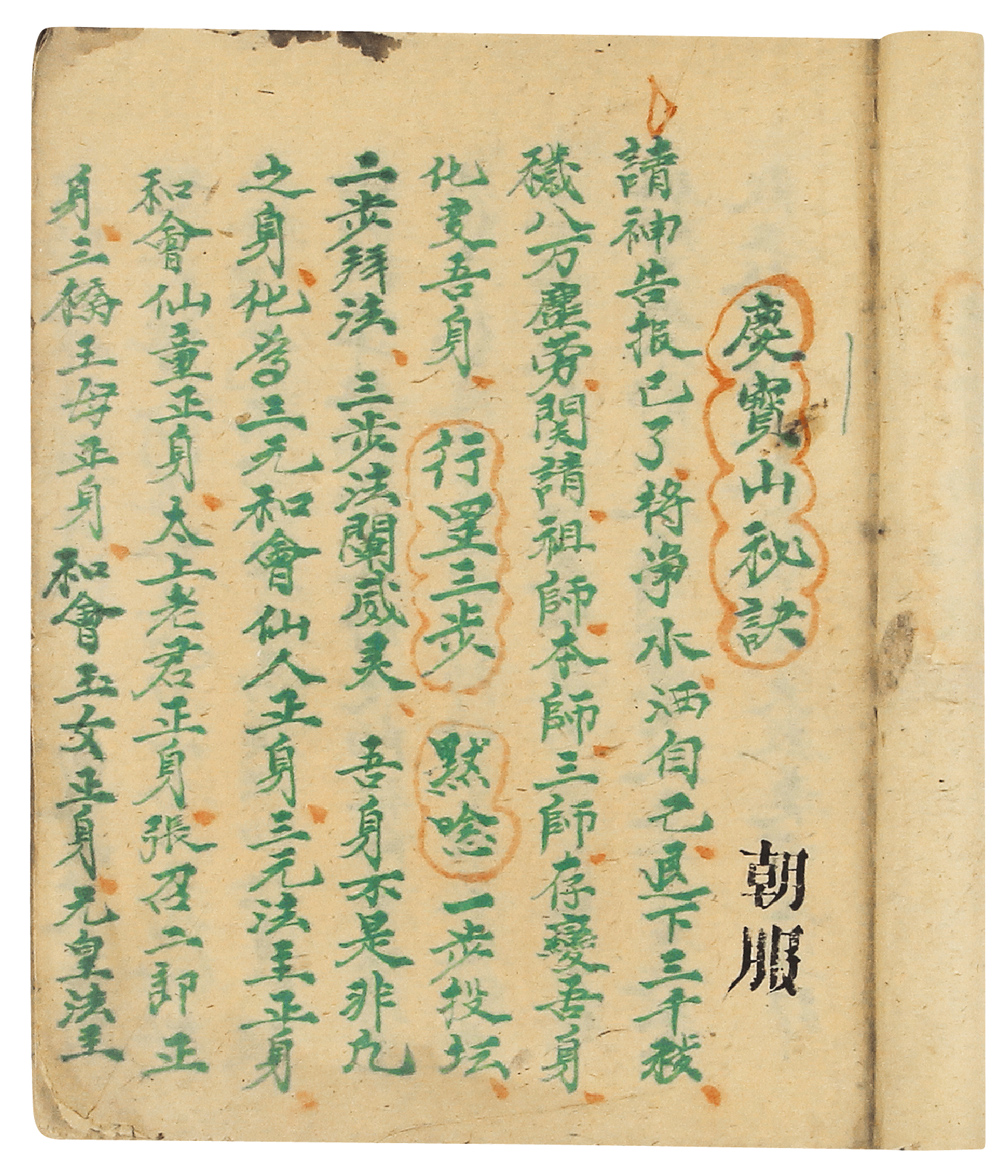 虔寳山秘訣
朝服
請神告报已了将净水洒自己退下三千秽
穢八万塵劳関請祖師本師三師存變吾身
化变吾身 行罡三步 默唸 一步投坛
二步拜法 三步法闡威灵 吾身不是非凢
之身化为三元和會仙人正身三元法主正身
和會仙童正身太上老君正身張召二郎正
身三橋王母正身和會玉女正身元皇法主